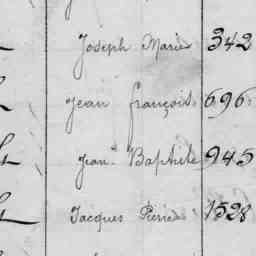 Joseph Marie 342
Jean françois 696
Jean Baptiste 945
Jacques Pierre 1528